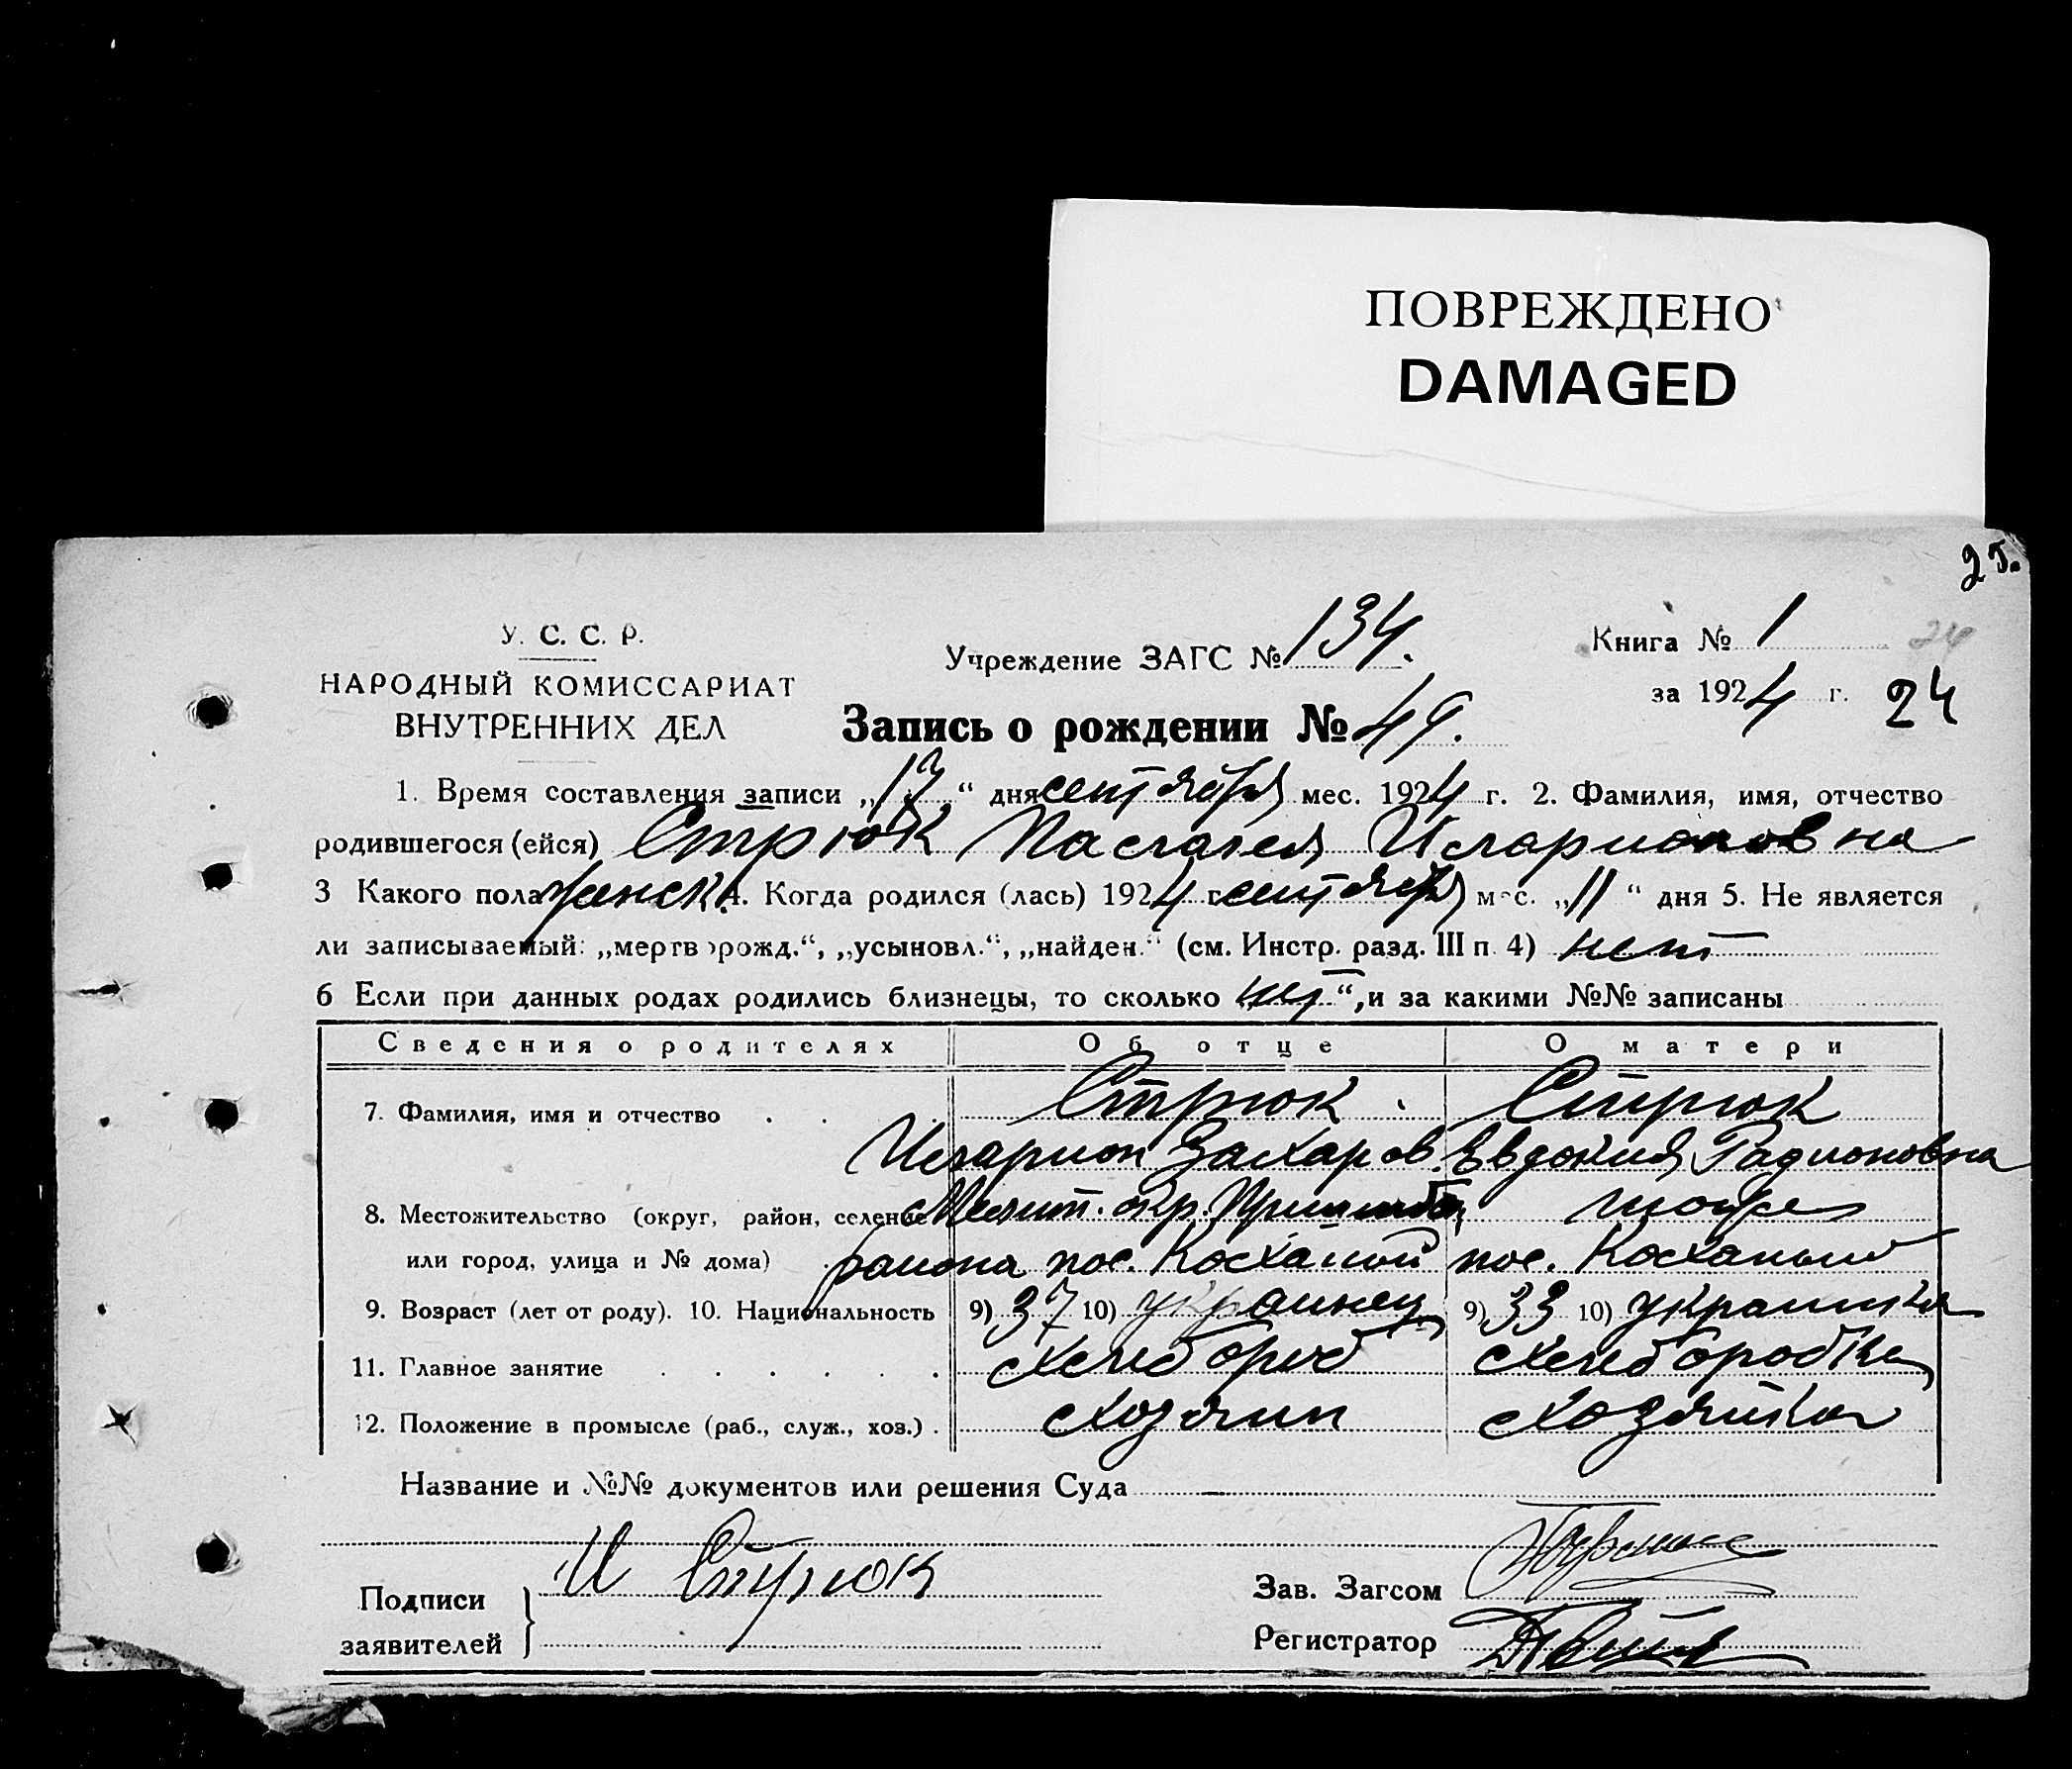 ПОВРЕЖДЕНО
DAMAGED
25.
У. С. С. Р.
НАРОДНЫЙ КОМИССАРИАТ
ВНУТРЕННИХ ДЕЛ
Учреждение ЗАГС № 134.
Книга № 1
24
за 1924 г. 24
Запись о рождении № 49.
1. Время составления записи „17“ дня сентября мес. 1924 г. 2. Фамилия, имя, отчество
родившегося (ейся) Стрюк Пасалея Иларионовна
3 Какого пола женск. 4. Когда родился (лась) 1924 г. сентября мес. „11“ дня 5. Не является
ли записываемый: „мертворожд.“, „усыновл.“, „найден.“ (см. Инстр. разд. III п. 4) нет
6 Если при данных родах родились близнецы, то сколько нет“, и за какими №№ записаны
Сведения о родителях Об отце О матери
7. Фамилия, имя и отчество Стрюк Стрюк
Иларион Захаров. Евдокия Радионовна
8. Местожительство (округ, район, селение Мелит. окр. тоже
или город, улица и № дома) района пос. пос.
9. Возраст (лет от роду). 10. Национальность 9) 37 10) украинец 9) 33 10) украинка
11. Главное занятие хлебороб хлеборобка
12. Положение в промысле (раб., служ., хоз.) хозяин хозяйка
Название и №№ документов или решения Суда —
Подписи заявителей И Стрюк
Зав. Загсом
Регистратор